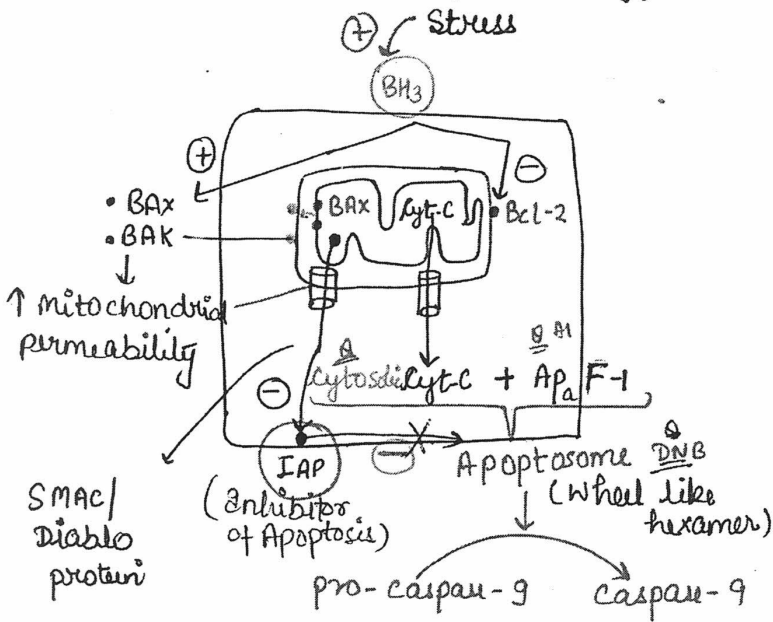 + Stress
BH3
+
-
• BAX
• BAK
BAX
Cyt-C
Bcl-2
↑ Mitochondrial
permeability
Q
Q A1
Cytosolic Cyt-C + ApaF-1
-
IAP
-
(Inhibitor
of Apoptosis)
SMAC/
Diablo
protein
Apoptosome
Q
DNB
(Wheel like
hexamer)
pro-caspase-9
caspase-9